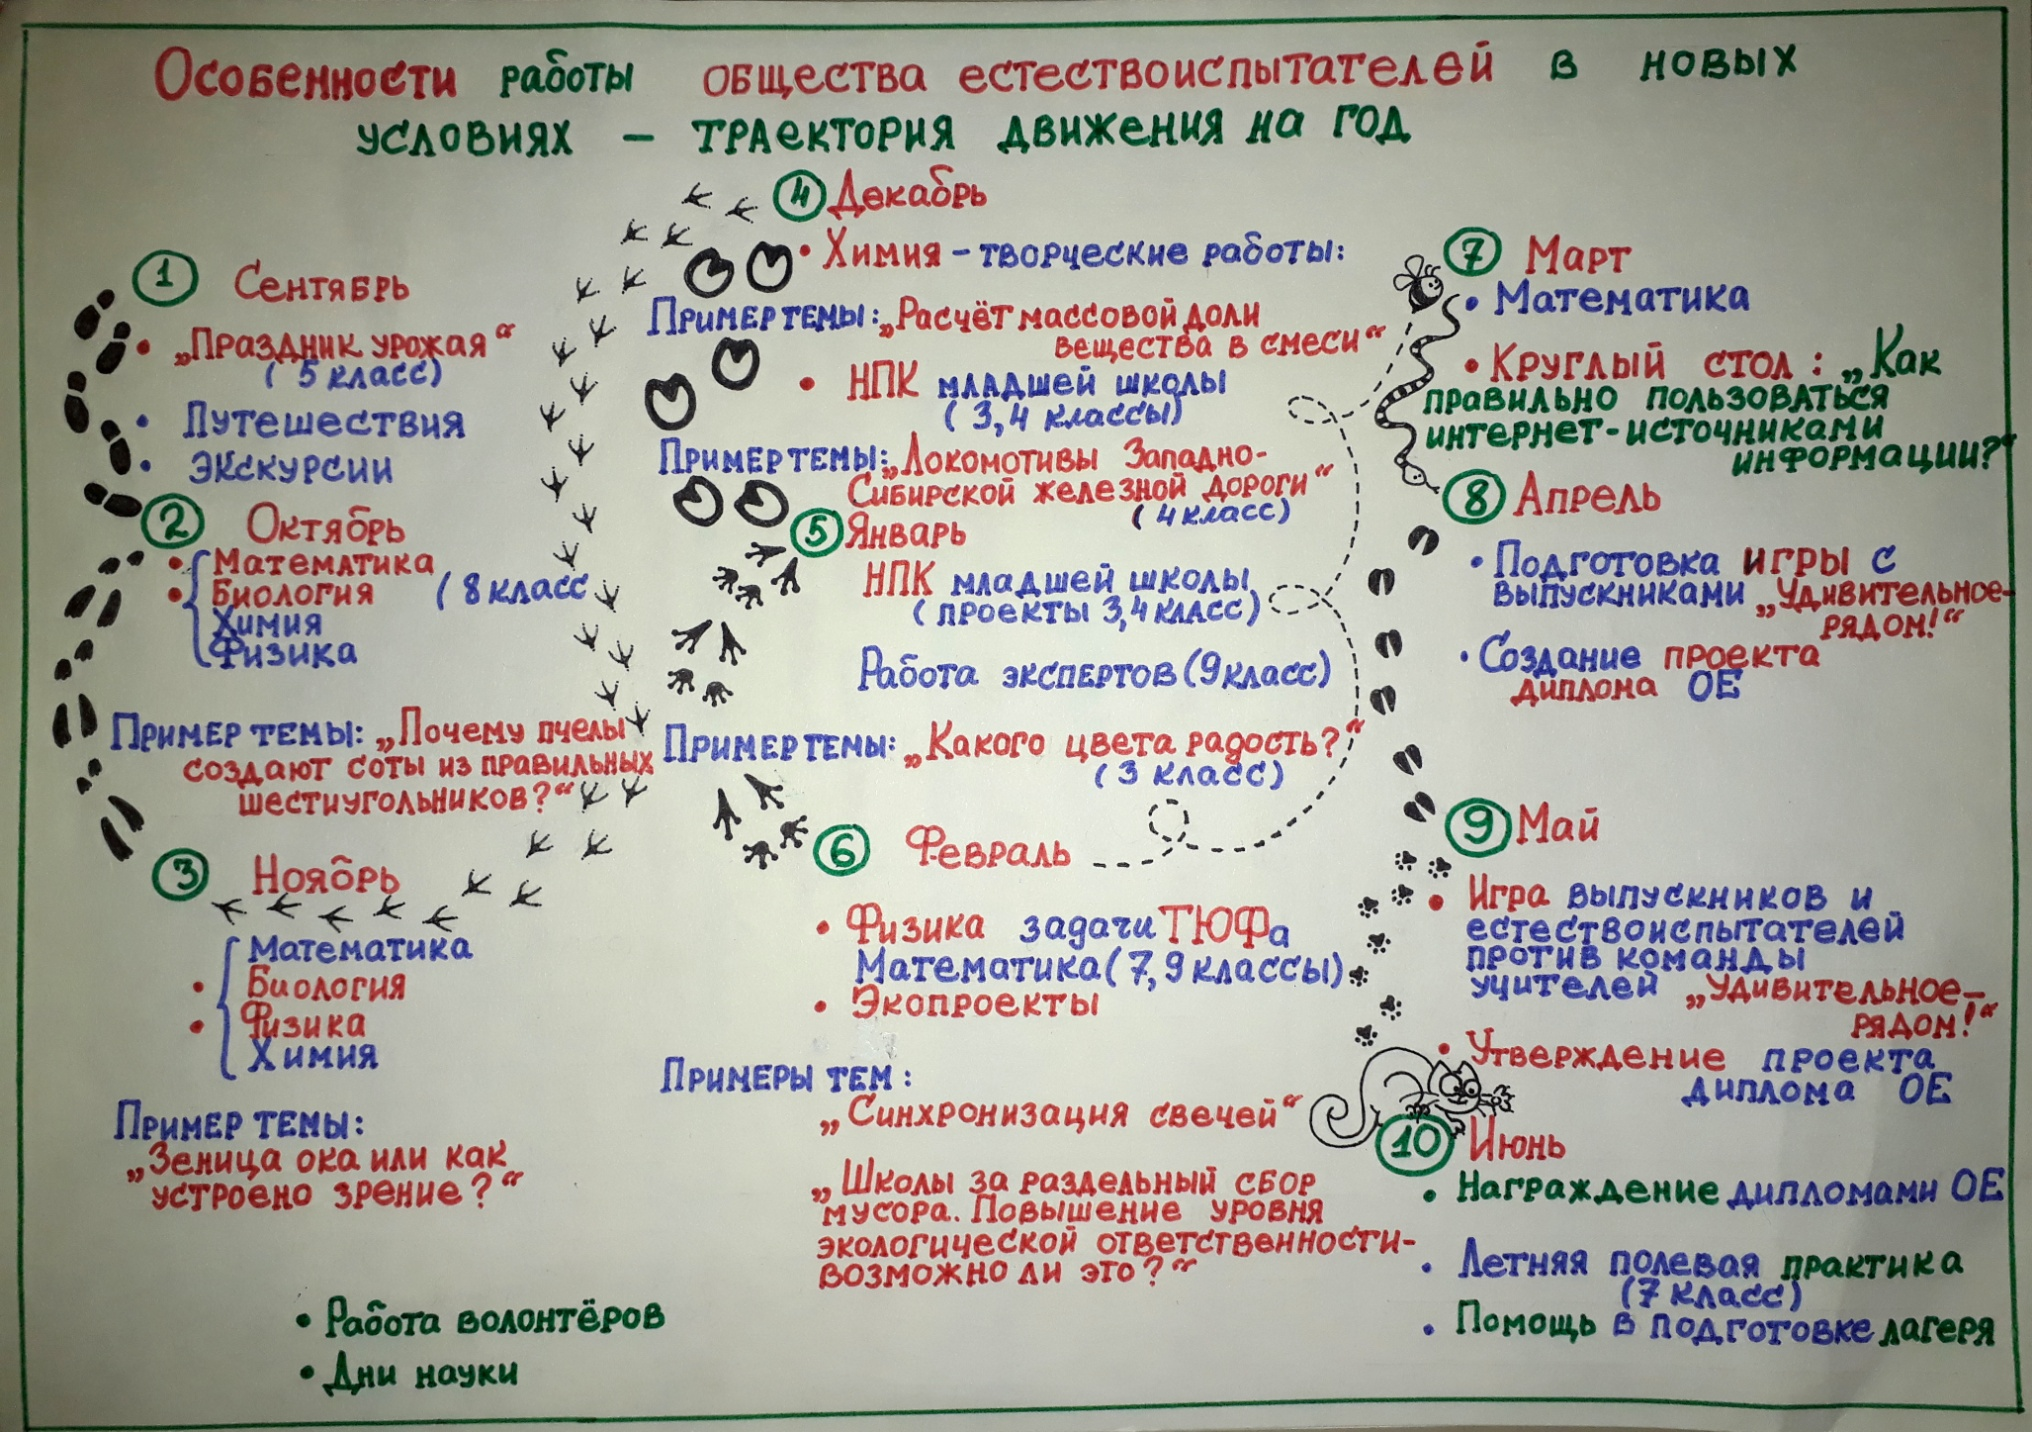 Особенности работы общества естествоиспытателей в новых
условиях – траектория движения на год
1 Сентябрь
• „Праздник урожая“
(5 класс)
• Путешествия
• экскурсии
2 Октябрь
• Математика
• Биология (8 класс
Химия
Физика
Пример темы: „Почему пчелы
создают соты из правильных
шестиугольников?“
3 Ноябрь
Математика
• Биология
• Физика
Химия
Пример темы:
„Зеница ока или как
устроено зрение?“
• Работа волонтёров
• Дни науки
4 Декабрь
• Химия – творческие работы:
Пример темы: „Расчёт массовой доли
вещества в смеси“
• НПК младшей школы
(3,4 классы)
Пример темы: „Локомотивы Западно-
Сибирской железной дороги“
(4 класс)
5 Январь
НПК младшей школы
(проекты 3,4 класс)
Работа экспертов (9 класс)
Пример темы: „Какого цвета радость?“
(3 класс)
6 Февраль
• Физика задачи ТЮФа
Математика (7,9 классы)
• Экопроекты
Примеры тем:
„Синхронизация свечей“
„Школы за раздельный сбор
мусора. Повышение уровня
экологической ответственности-
возможно ли это?“
7 Март
• Математика
• Круглый стол: „Как
правильно пользоваться
интернет-источниками
информации?“
8 Апрель
• Подготовка игры с
выпускниками „Удивительное-
рядом!“
• Создание проекта
диплома ОЕ
9 Май
• Игра выпускников и
естествоиспытателей
против команды
учителей „Удивительное-
рядом!“
• Утверждение проекта
диплома ОЕ
10 Июнь
• Награждение дипломами ОЕ
• Летняя полевая практика
(7 класс)
• Помощь в подготовке лагеря